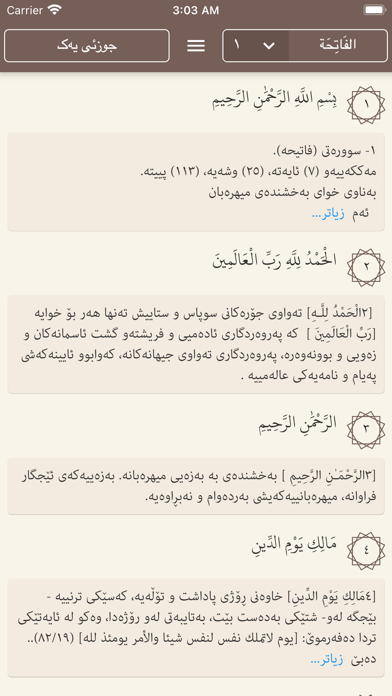 Carrier 3:03 AM
الفَاتِحَة ١ جوزئی یەک
١ بِسْمِ اللَّهِ الرَّحْمَٰنِ الرَّحِيمِ
١- سوورەتی (فاتیحە).
مەککەییەو (٧) ئایەتە، (٢٥) وشەیە، (١١٣) پیتە.
بەناوی خوای بەخشندەی میهرەبان
ئەم زیاتر...
٢ الْحَمْدُ لِلَّهِ رَبِّ الْعَالَمِينَ
[٢الْحَمْدُ لِلَّـهِ] تەواوی جۆرەکانی سوپاس و ستاییش تەنها هەر بۆ خوایە
[رَبِّ الْعَالَمِينَ ] کە پەروەردگاری ئادەمیی و فریشتەو گشت ئاسمانەکان و
زەویی و بوونەوەرە، پەروەردگاری تەواوی جیهانەکانە، کەوابوو ئایینەکەشی
پەیام و نامەیەکی عالەمییە .
٣ الرَّحْمَٰنِ الرَّحِيمِ
[٣الرَّحْمَـٰنِ الرَّحِيمِ ] بەخشندەی بە بەزەیی میهرەبانە. بەزەییەکەی ئێجگار
فراوانە، میهرەبانییەکەیشی بەردەوام و نەبڕاوەیە.
٤ مَالِكِ يَوْمِ الدِّينِ
[٤مَالِكِ يَوْمِ الدِّينِ] خاوەنی ڕۆژی پاداشت و تۆڵەیە، کەسێکی ترنییە -
بێجگە لەو- شتێکی بەدەست بێت، بەتایبەتی لەو ڕۆژەدا، وەکو لە ئایەتێکی
تردا دەفەرموێ: [يوم لاتملك نفس لنفس شيئا والأمر يومئذ لله] (٨٢/١٩)..
دەبێ زیاتر...